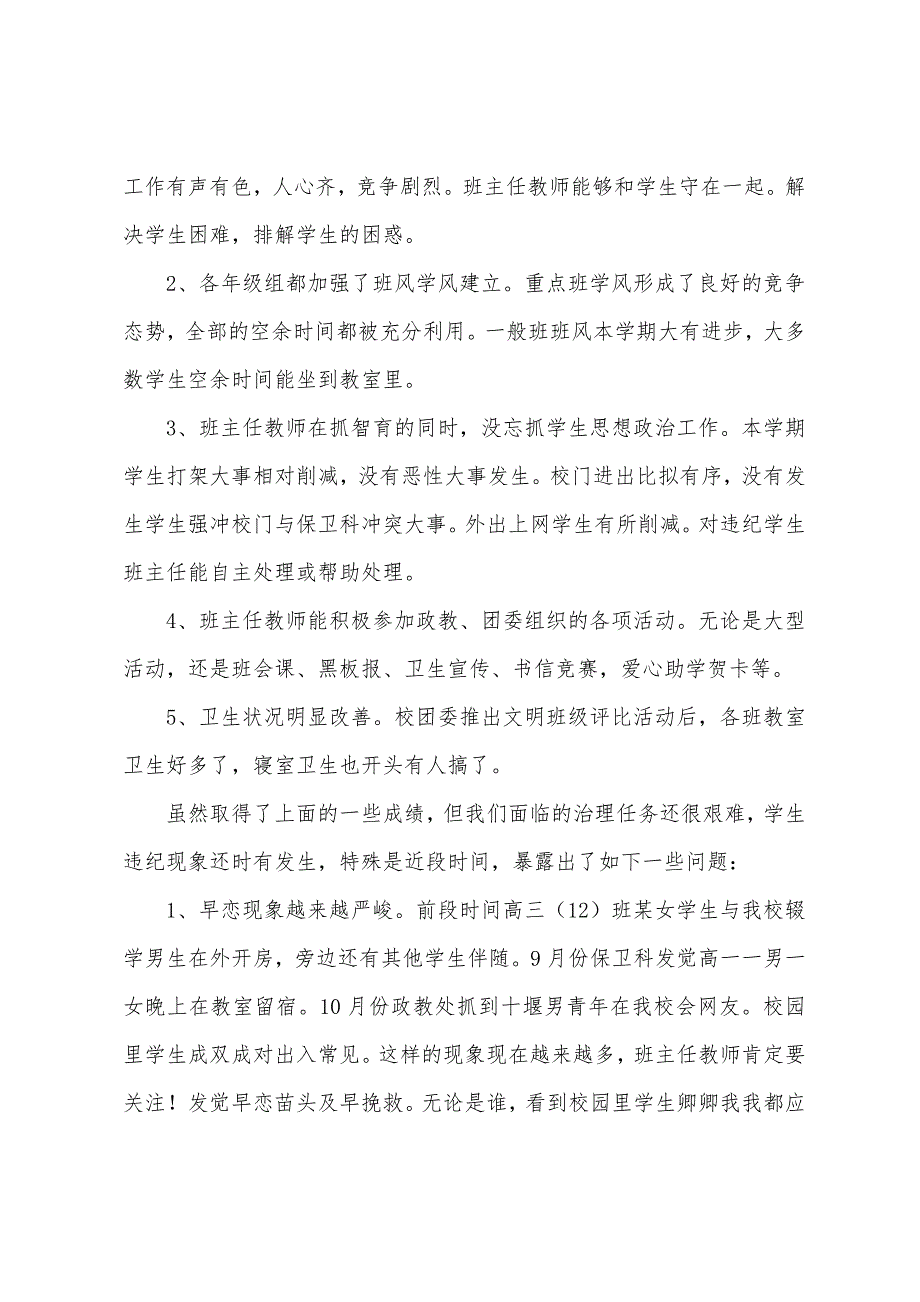 工作有声有色，人心齐，竞争剧烈。班主任教师能够和学生守在一起。解
决学生困难，排解学生的困惑。
2、各年级组都加强了班风学风建立。重点班学风形成了良好的竞争
态势，全部的空余时间都被充分利用。一般班班风本学期大有进步，大多
数学生空余时间能坐到教室里。
3、班主任教师在抓智育的同时，没忘抓学生思想政治工作。本学期
学生打架大事相对削减，没有恶性大事发生。校门进出比拟有序，没有发
生学生强冲校门与保卫科冲突大事。外出上网学生有所削减。对违纪学生
班主任能自主处理或帮助处理。
4、班主任教师能积极参加政教、团委组织的各项活动。无论是大型
活动，还是班会课、黑板报、卫生宣传、书信竞赛，爱心助学贺卡等。
5、卫生状况明显改善。校团委推出文明班级评比活动后，各班教室
卫生好多了，寝室卫生也开头有人搞了。
虽然取得了上面的一些成绩，但我们面临的治理任务还很艰难，学生
违纪现象还时有发生，特殊是近段时间，暴露出了如下一些问题：
1、早恋现象越来越严峻。前段时间高三（12）班某女学生与我校辍
学男生在外开房，旁边还有其他学生伴随。9 月份保卫科发觉高一一男一
女晚上在教室留宿。10 月份政教处抓到十堰男青年在我校会网友。校园
里学生成双成对出入常见。这样的现象现在越来越多，班主任教师肯定要
关注！发觉早恋苗头及早挽救。无论是谁，看到校园里学生卿卿我我都应